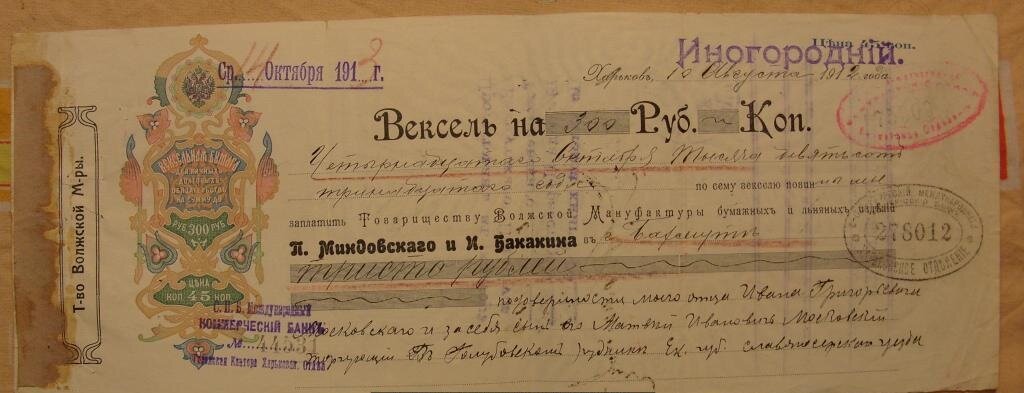 Цѣна 45 коп.
Иногородній.
Ср. 14 Октября 1913 г.
Харьковъ, 10 Августа 1912 года
Вексель на 300 Руб. „ Коп.
Четырнадцатаго Октября Тысяча девятьсот
тринадцатаго года по сему векселю повин
заплатить Товариществу Волжской Мануфактуры бумажныхъ и льняныхъ издѣлій
П. Миндовскаго и И. Бакакина въ г Бахмутъ
триста рублей
по довѣрiности моего отца Ивана Григорьевича
Московскаго и за себя сынъ его Матвѣй Ивановичъ Московскій
торгующій въ Голубовскомъ рудникѣ Ек. губ. славяносербскаго уѣзда
Т-во Волжской М-ры.
ВЕКСЕЛЬНАЯ БУМАГА
ДЛЯ ЛИЧНЫХЪ
ДОЛГОВЫХЪ
ОБЯЗАТЕЛЬСТВЪ
НА СУММУ ДО
РУБ. 300 РУБ.
ЦѢНА
КОП. 45 КОП.
С. П. Б. Международный
КОММЕРЧЕСКІЙ БАНКЪ
№ 44531
278012
ОТДѢЛЕНІЕ